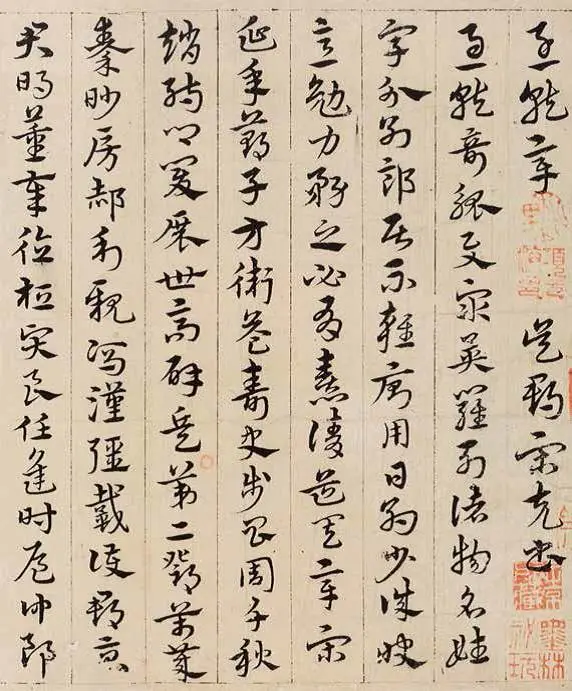 急就章 吳郡宋克書
急就奇觚與眾異羅列諸物名姓
字分別部居不雜廁用日約少誠快
意勉力務之必有憙請道其章宋
延年鄭子方衛益壽史步昌周千秋
趙孺卿爰展世高辟兵第二鄧萬歲
秦眇房郝利親馮漢彊戴護郡景
君明董奉德桓賢良任逢時侯仲郎